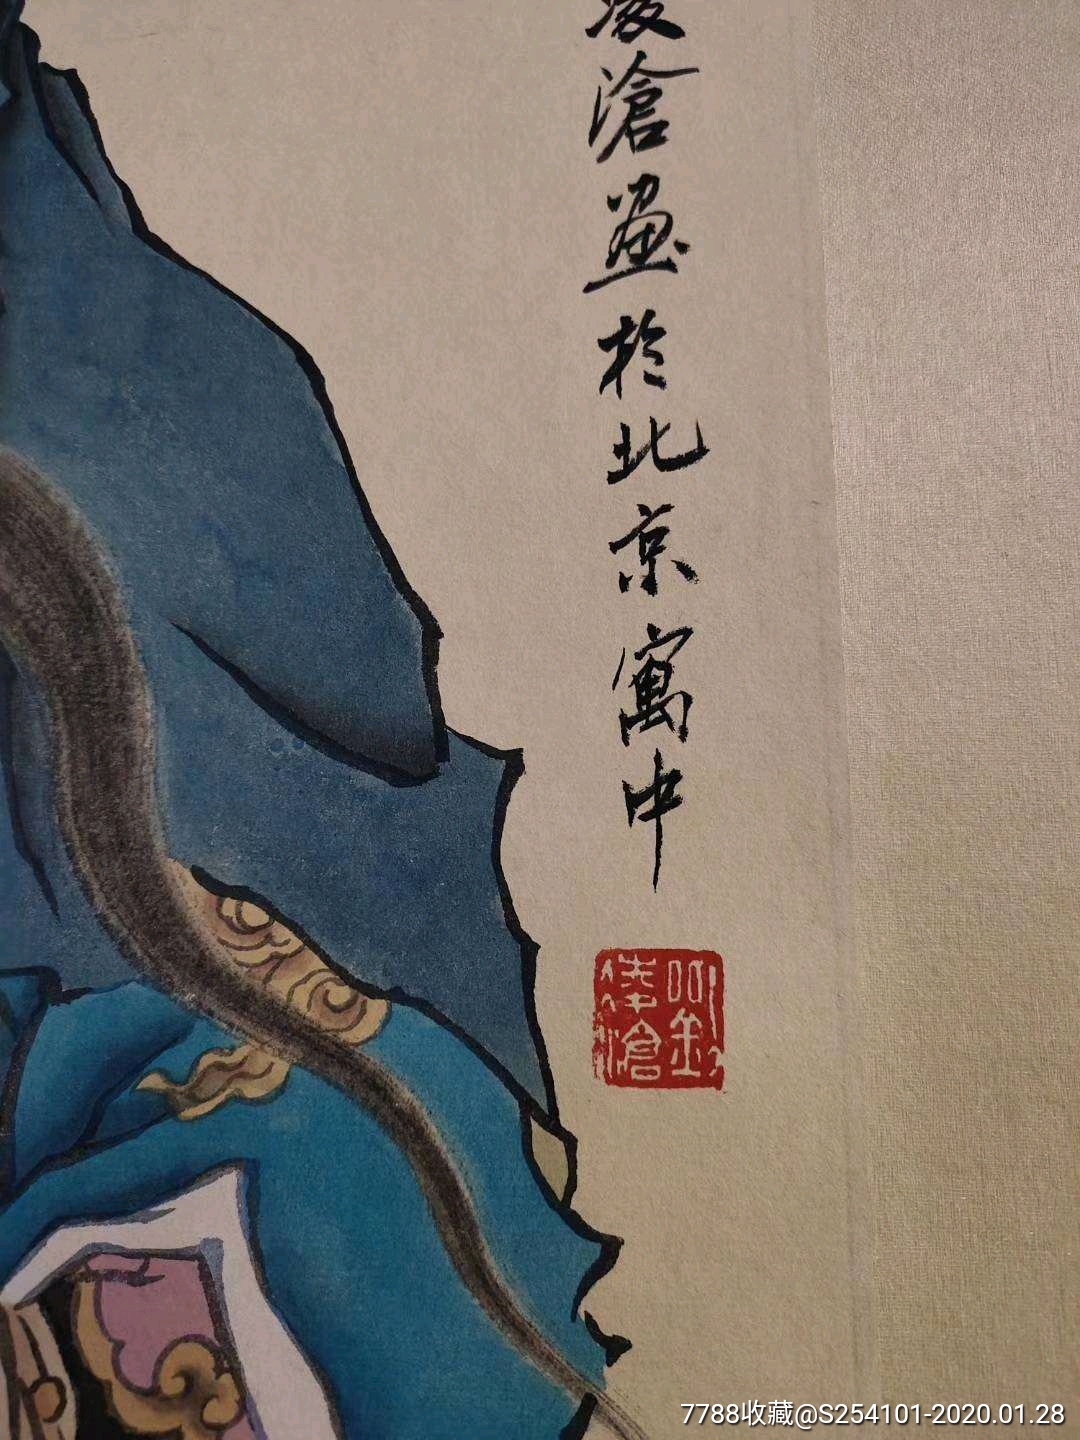 凌滄畫於北京寓中
劉凌滄
7788收藏@S254101-2020.01.28